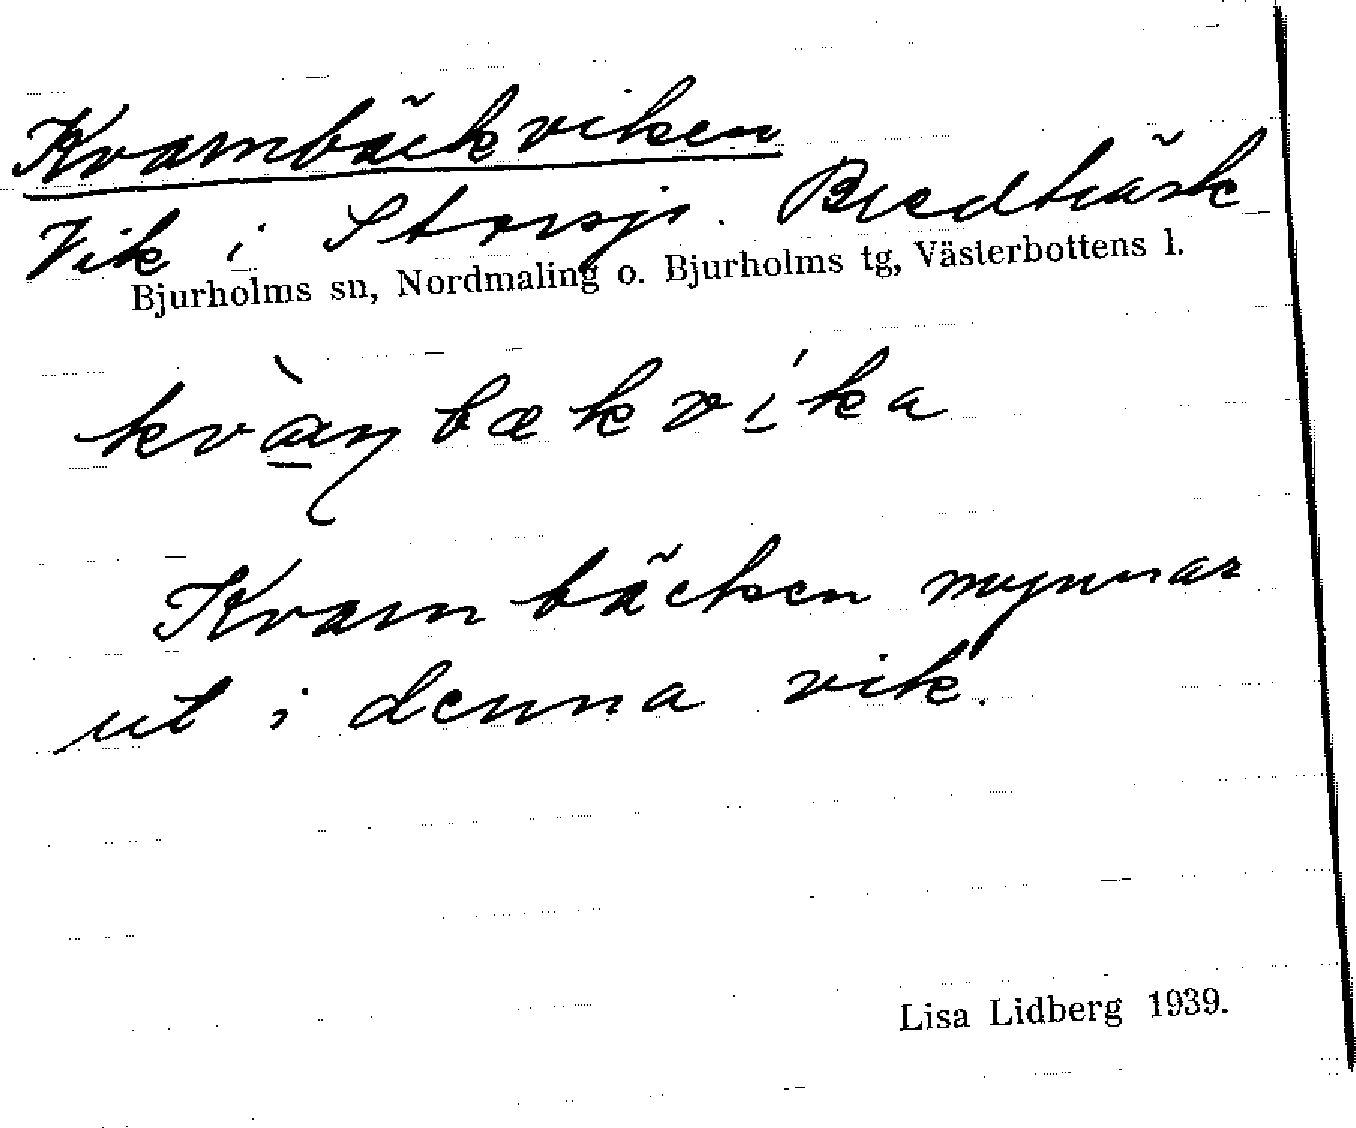 Kvambäckviken
Vik i Storsjn. Bredträsk
Bjurholms sn, Nordmaling o. Bjurholms tg, Västerbottens l.
kvàm̡bækvíka
Kvambäcken mynnar
ut i denna vik.
Lisa Lidberg 1939.